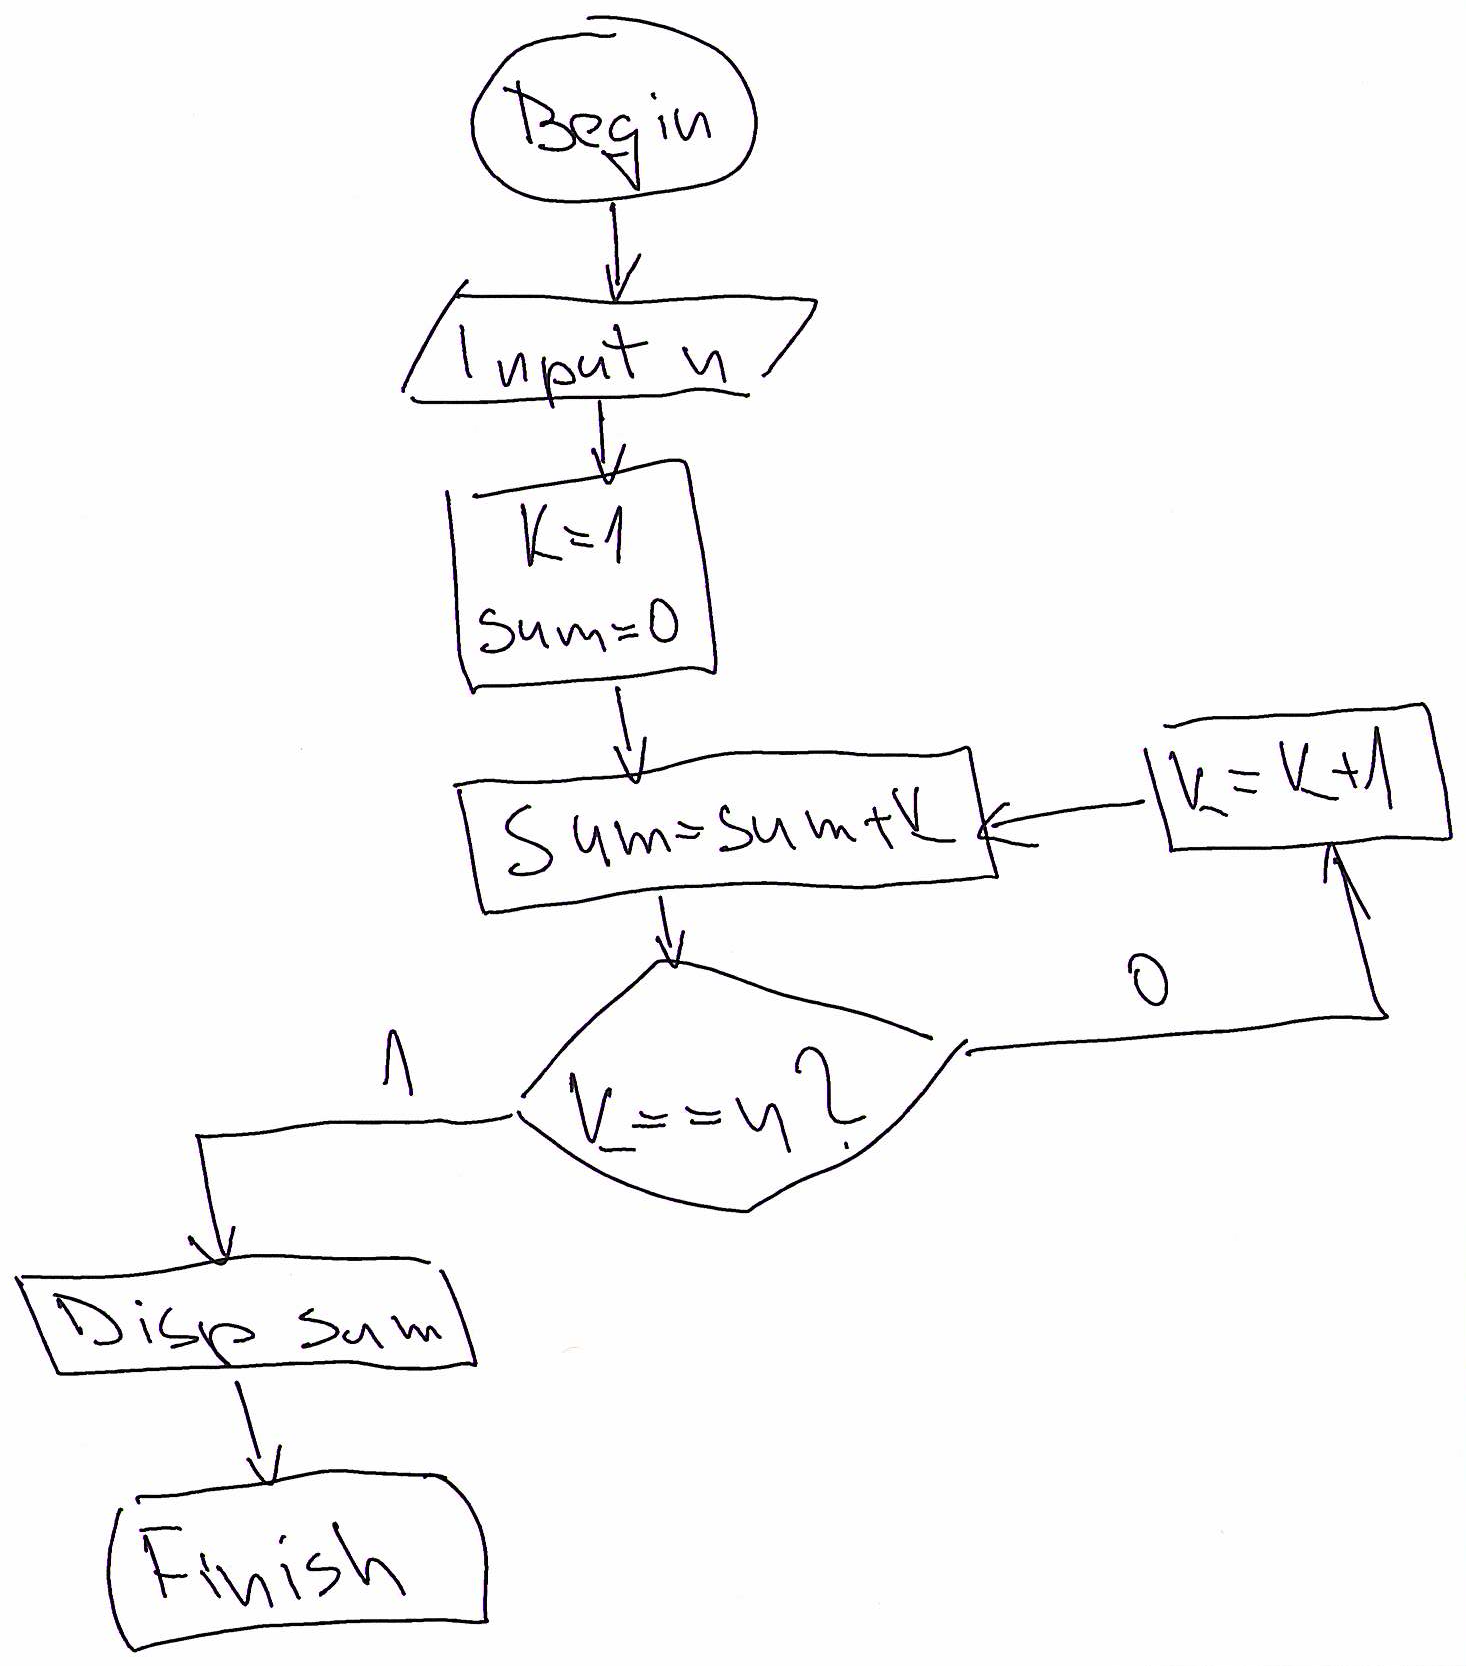 Begin
Input n
K=1
sum=0
Sum=sum+K
K=K+1
0
1
K==n?
Disp sum
Finish